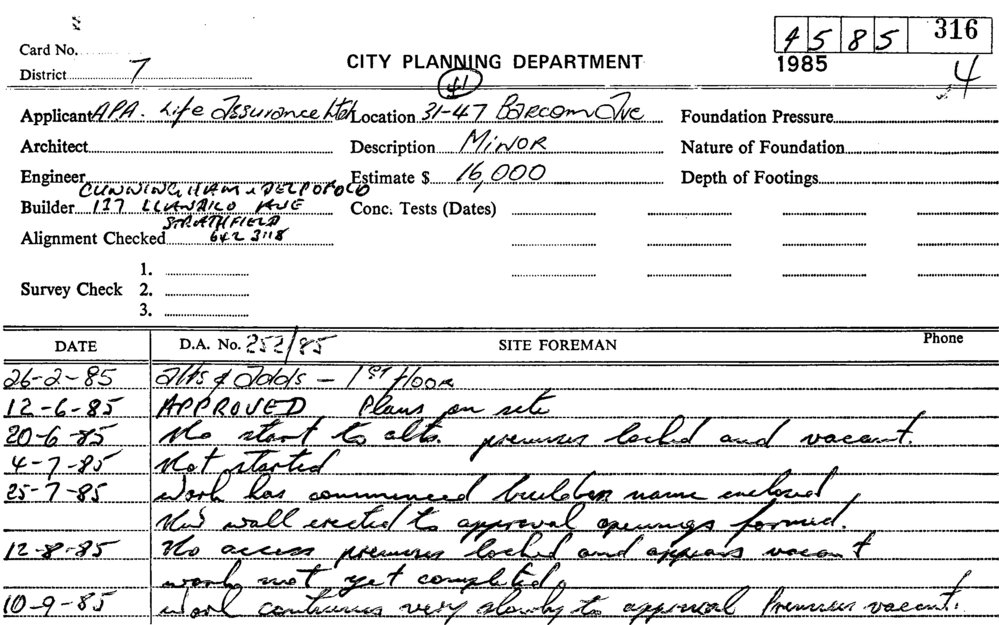 4585 316
Card No.
1985
District 7
CITY PLANNING DEPARTMENT
4
41
Applicant APA. Life Assurance Ltd Location 31-47 Barcom Ave Foundation Pressure
Architect Description MINOR Nature of Foundation
Engineer Estimate $ 16,000 Depth of Footings
CUNNINGHAM &
Builder 117 LLANDILO AVE Conc. Tests (Dates)
STRATHFIELD
Alignment Checked 642 3118
1.
Survey Check 2.
3.
DATE D.A. No. 252/85 SITE FOREMAN Phone
26-2-85 Alts & Adds - 1ST Floor
12-6-85 APPROVED Plans on site
20-6-85 No start to alts. premises locked and vacant.
4-7-85 Not started
25-7-85 Work has commenced builders name enclosed,
New wall erected to approval openings formed.
12-8-85 No access premises locked and appears vacant
work not yet completed.
10-9-85 Work continues very slowly to approval Premises vacant.